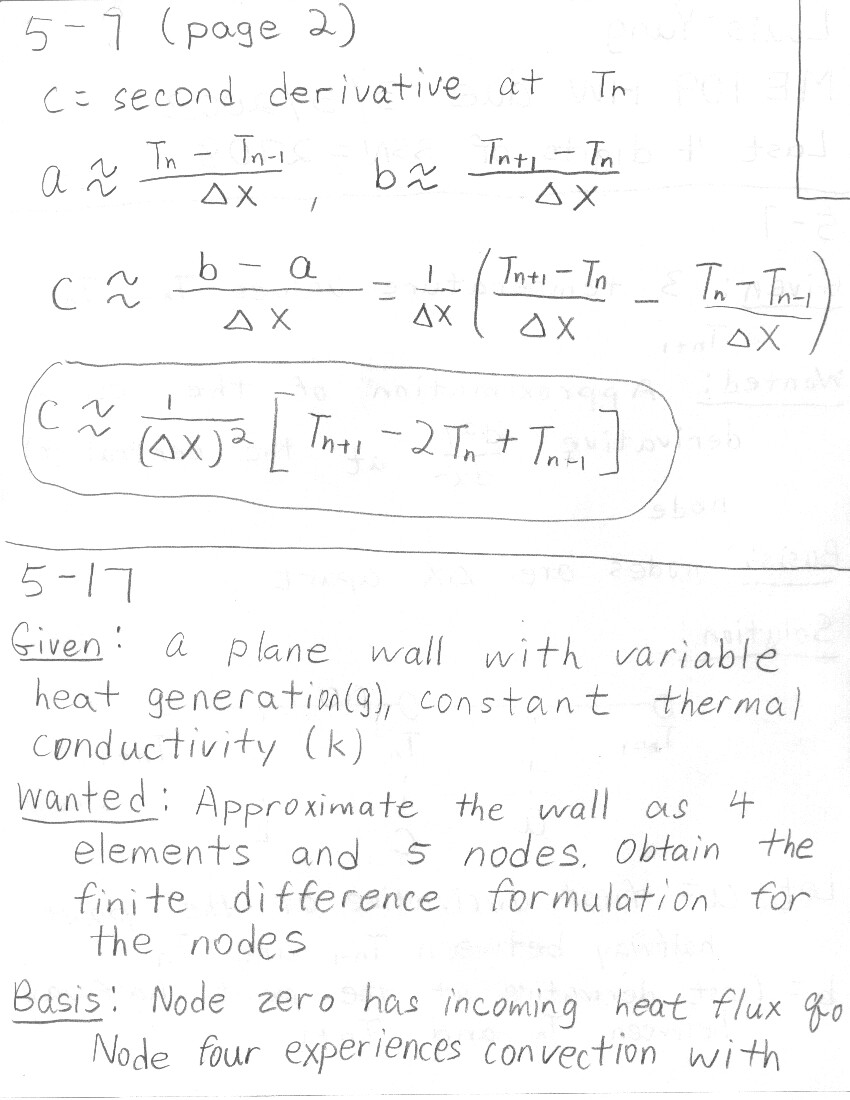 5-7 (page 2)
C = second derivative at Tn
a ≈ (Tn - Tn-1)/ΔX , b ≈ (Tn+1 - Tn)/ΔX
C ≈ (b - a)/ΔX = 1/ΔX ((Tn+1 - Tn)/ΔX - (Tn - Tn-1)/ΔX)
C ≈ 1/(ΔX)² [Tn+1 - 2Tn + Tn-1]
5-17
Given: a plane wall with variable
heat generation(g), constant thermal
conductivity (k)
Wanted: Approximate the wall as 4
elements and 5 nodes. Obtain the
finite difference formulation for
the nodes
Basis: Node zero has incoming heat flux q0
Node four experiences convection with